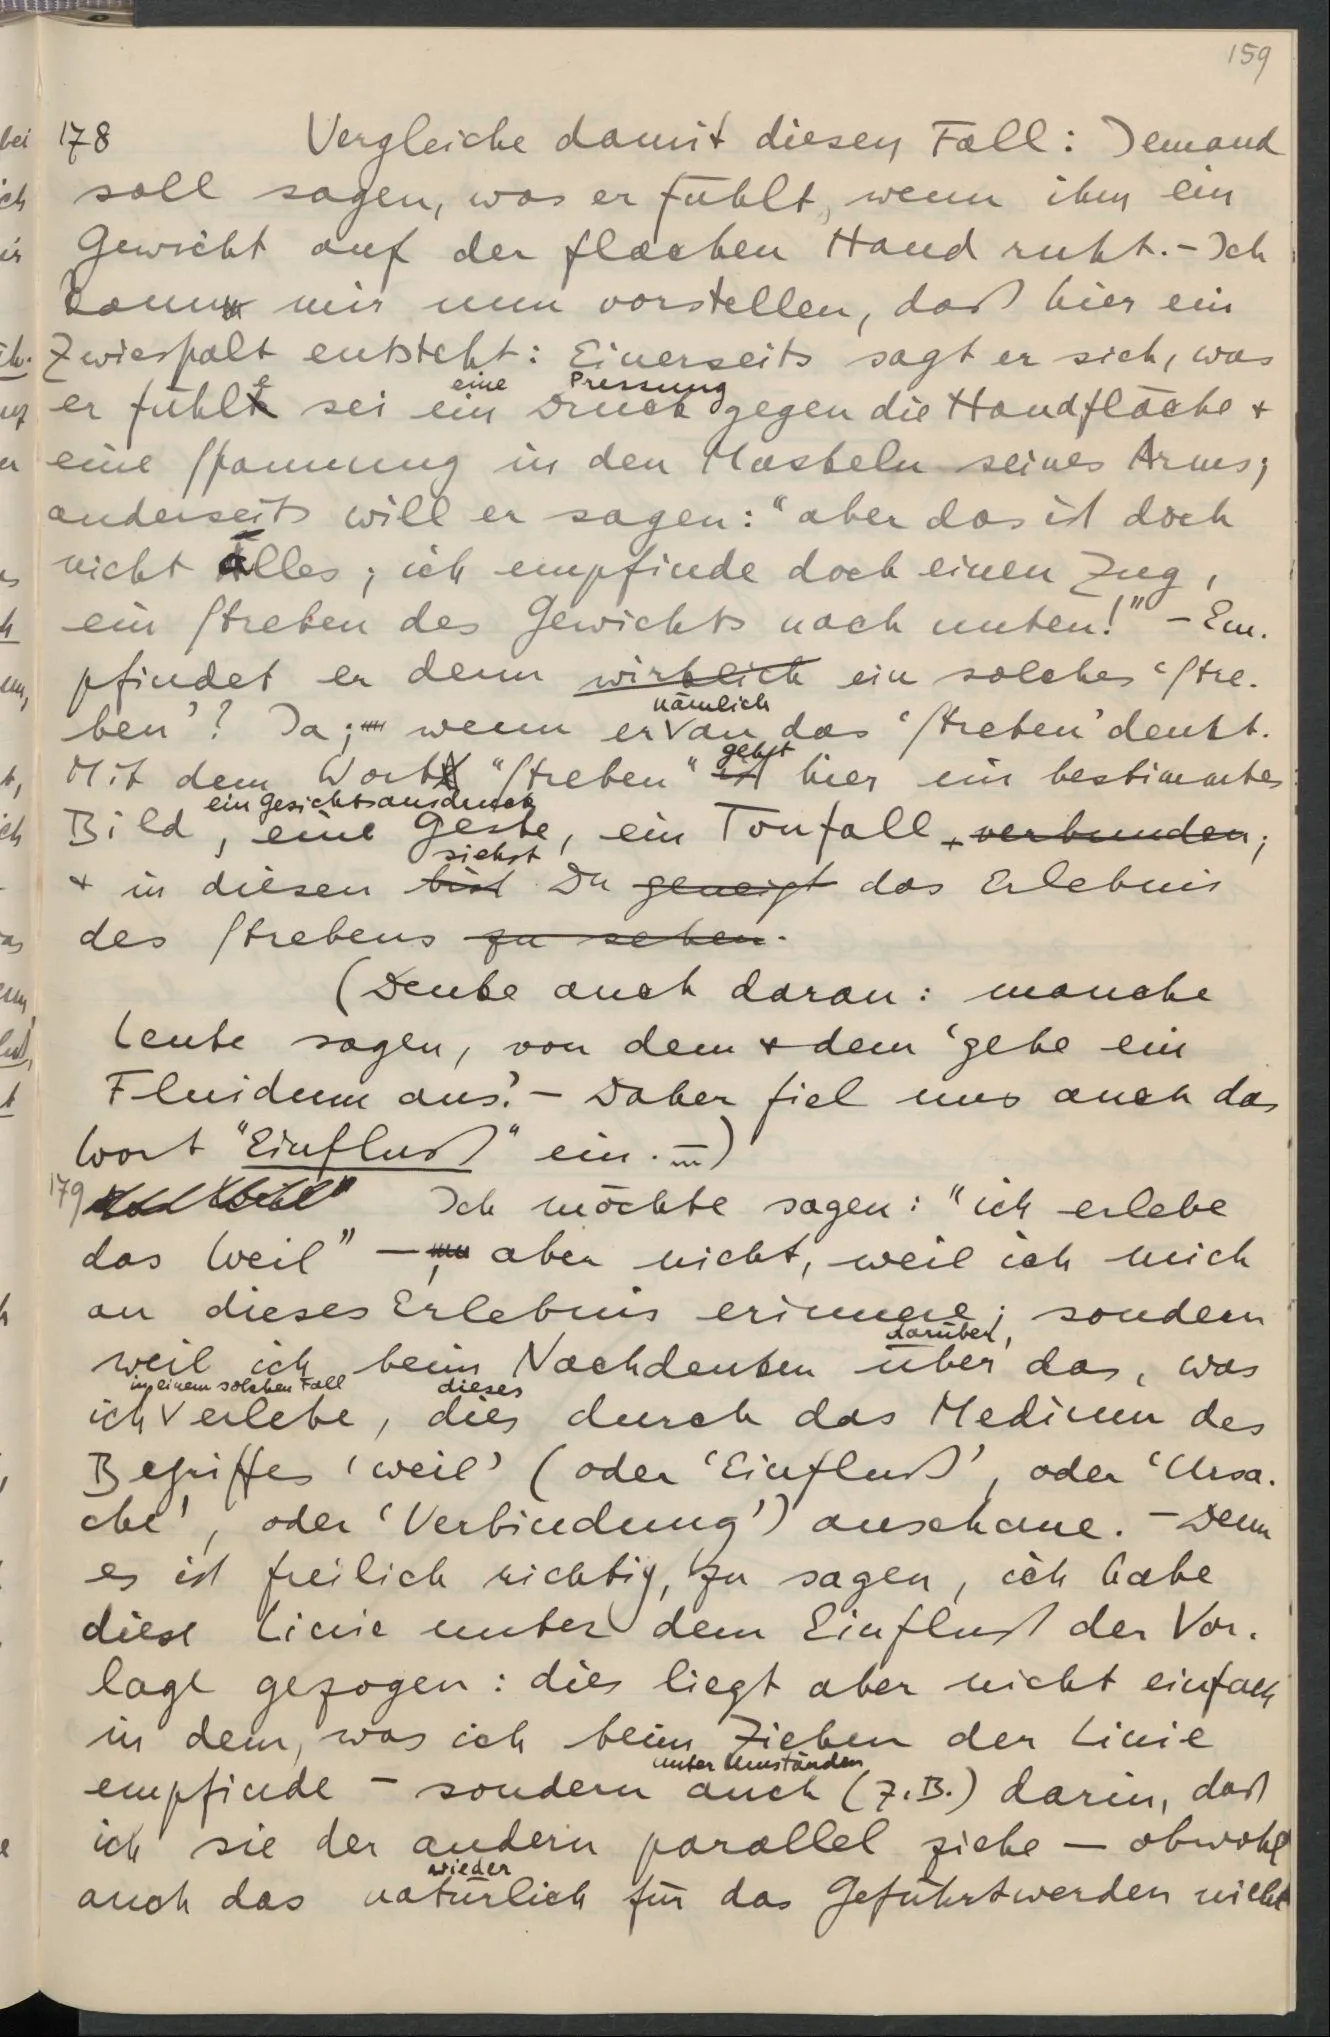 159
178 Vergleiche damit diesen Fall: Jemand
soll sagen, was er fühlt, wenn ihm ein
Gewicht auf der flachen Hand ruht. – Ich
kann mir nun vorstellen, daß hier ein
Zwiespalt entsteht: Einerseits sagt er sich, was
eine Pressung
er fühle sei ein Druck gegen die Handfläche +
eine Spannung in den Muskeln seines Arms;
anderseits will er sagen: "aber das ist doch
nicht alles; ich empfinde doch einen Zug,
ein Streben des Gewichts nach unten!" – Em-
pfindet er denn wirklich ein solches 'Stre-
nämlich
ben'? Ja; wenn er an das 'Streben' denkt.
geht
Mit dem Wort "Streben" ist hier ein bestimmtes
ein Gesichtsausdruck
Bild, eine Geste, ein Tonfall, verbunden;
siehst
+ in diesen bist Du geneigt das Erlebnis
des Strebens zu sehen.
(Denke auch daran: manche
Leute sagen, von dem + dem 'gehe ein
Fluidum aus'. – Daher fiel uns auch das
Wort "Einfluß" ein. –)
179 Ich möchte sagen: "ich erlebe
das Weil" – aber nicht, weil ich mich
an dieses Erlebnis erinnere; sondern
darüber,
weil ich beim Nachdenken über das, was
in einem solchen Fall dieses
ich erlebe, dies durch das Medium des
Begriffes 'weil' (oder 'Einfluß', oder 'Ursa-
che', oder 'Verbindung') anschaue. – Denn
es ist freilich richtig, zu sagen, ich habe
diese Linie unter dem Einfluß der Vor-
lage gezogen: dies liegt aber nicht einfach
in dem, was ich beim Ziehen der Linie
unter Umständen
empfinde – sondern auch (z.B.) darin, daß
ich sie der andern parallel ziehe – obwohl
wieder
auch das natürlich für das Geführtwerden nicht